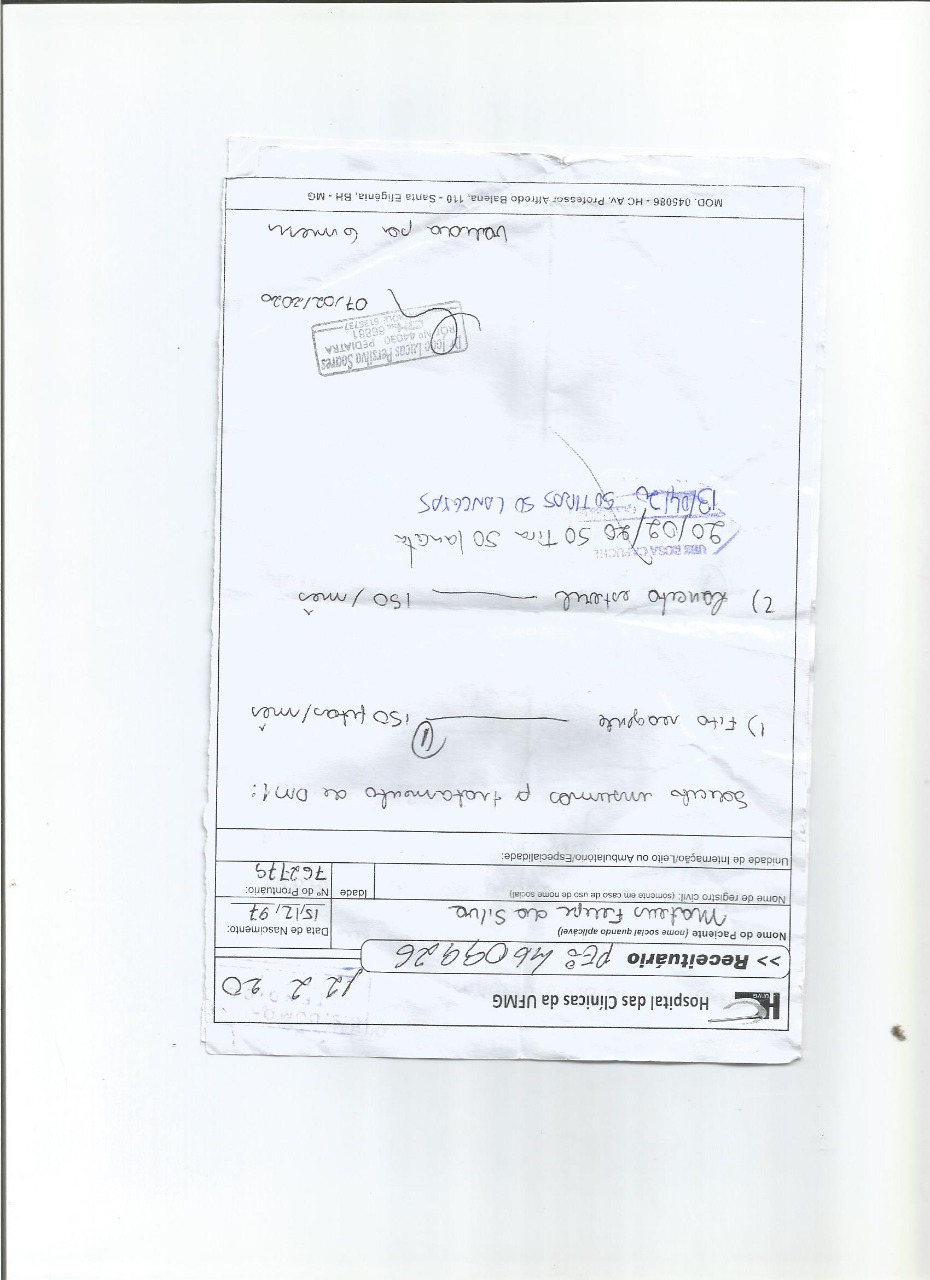 HC UFMG
Hospital das Clínicas da UFMG
12 2 20
>> Receituário PEº 4609926
Nome do Paciente (nome social quando aplicável)
Mateus Felipe da Silva
Data de Nascimento:
15/12/97
Nome de registro civil: (somente em caso de uso de nome social)
Idade
Nº do Prontuário:
762779
Unidade de Internação/Leito ou Ambulatório/Especialidade:
Solicito insumos p tratamento de DM1:
1) Fita reagente 150 fitas/mês
2) Lanceta estéril 150/mês
20/02/20 50 Tira 50 lanceta
13/04/20 50 TIRAS 50 LANCETAS
PEDIATRA
07/02/2020
Validade por 6 meses
MOD. 045086 - HC Av. Professor Alfredo Balena, 110 - Santa Efigênia, BH - MG